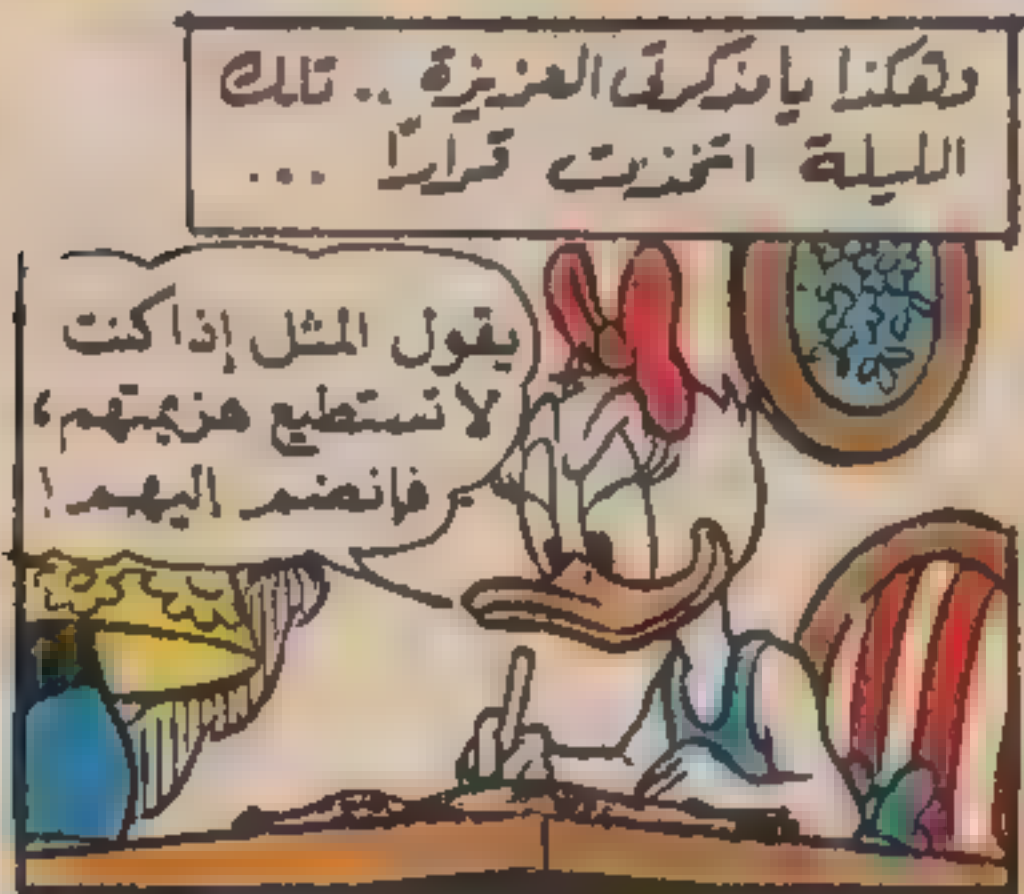 وهكذا يا مذكرتى العزيزة .. تلك
الليلة اتخذت قرارًا ...
يقول المثل إذا كنت
لا تستطيع هزيمتهم،
فانضم إليهم !